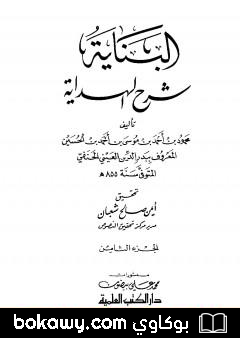 البناية
شرح الهداية
تأليف
محمود بن أحمد بن موسى بن أحمد بن الحسين
المعروف ببدر الدين العيني الحنفي
المتوفى سنة ٨٥٥ هـ
تحقيق
أيمن صالح شعبان
الجزء الثامن
منشورات
محمد علي بيضون
دار الكتب العلمية
بوكاوي bokawy.com